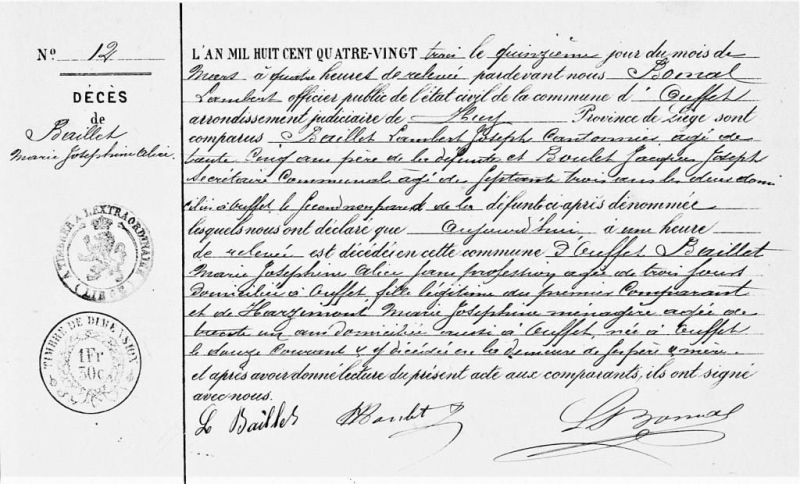 Nº 12
DÉCÈS
de
Baillet
Marie Josephine Alice.
A TIMBRER A L'EXTRAORDINAIRE
(LIÈGE)
TIMBRE DE DIMENSION
1Fr
30c
L'AN MIL HUIT CENT QUATRE-VINGT trois le quinzième jour du mois de
Mars à quatre heures de relevée pardevant nous Bonal
Lambert officier public de l'état civil de la commune d' Ouffet
arrondissement judiciaire de Huy Province de Liège sont
comparus Baillet Lambert Joseph Cantonnier agé de
trente cinq ans père de la défunte et Boulet Jacques Joseph
Secrétaire Communal agé de septante trois ans les deux domi
ciliés à Ouffet, le second non parent de la défunte ci après dénommée
lesquels nous ont déclaré que aujourd'hui a une heure
de relevée est décédée en cette commune d'Ouffet Baillet
Marie Josephine Alice sans profession agée de trois jours
domiciliée à Ouffet, fille légitime du premier Comparant
et de Harzemont Marie Josephine ménagère agée de
trente un ans domiciliée aussi à Ouffet, née à Ouffet
le douze Courant & y décédée en la demeure de ses père & mère.
et après avoir donné lecture du présent acte aux comparants, ils ont signé
avec nous.
L Baillet
Boulet
L Bonal